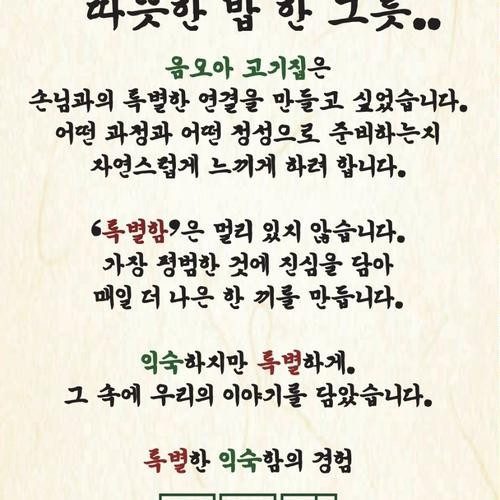 따뜻한 밥 한 그릇..
음모아 고기집은
손님과의 특별한 연결을 만들고 싶었습니다.
어떤 과정과 어떤 정성으로 준비하는지
자연스럽게 느끼게 하려 합니다.
‘특별함’은 멀리 있지 않습니다.
가장 평범한 것에 진심을 담아
매일 더 나은 한 끼를 만듭니다.
익숙하지만 특별하게.
그 속에 우리의 이야기를 담았습니다.
특별한 익숙함의 경험